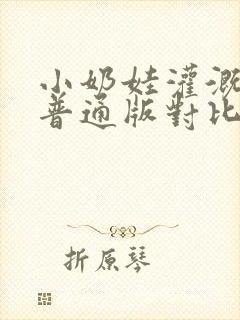 小奶娃灌溉
普通版對比
折原琴